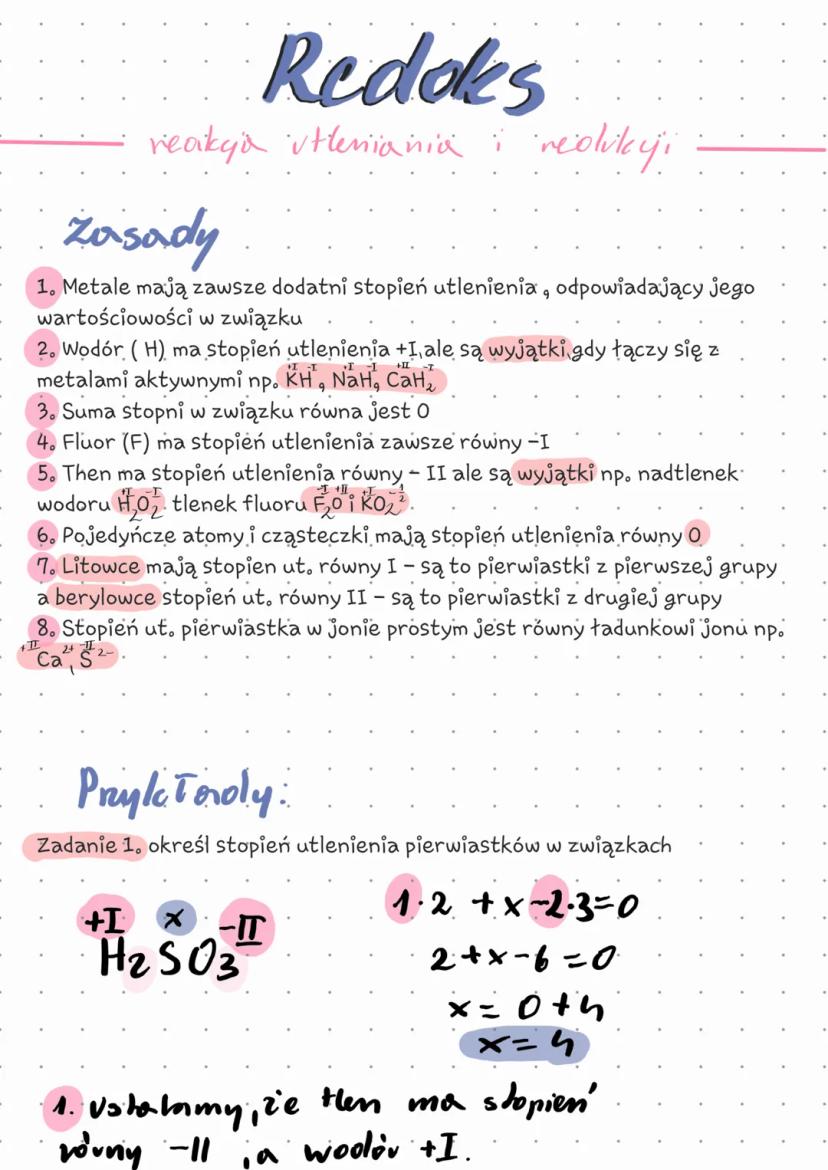 Redoks
reakcja utleniania i redukcji
Zasady
1. Metale mają zawsze dodatni stopień utlenienia, odpowiadający jego
wartościowości w związku
2. Wodór ( H) ma stopień utlenienia +I, ale są wyjątki gdy łączy się z
metalami aktywnymi np. K⁺ᴵH⁻ᴵ, Na⁺ᴵH⁻ᴵ, Ca⁺ᴵᴵH₂⁻ᴵ
3. Suma stopni w związku równa jest 0
4. Fluor (F) ma stopień utlenienia zawsze równy -I
5. Then ma stopień utlenienia równy - II ale są wyjątki np. nadtlenek
wodoru H₂⁺ᴵO₂⁻ᴵ tlenek fluoru F₂⁻ᴵO⁺ᴵᴵ i K⁺ᴵO₂⁻½
6. Pojedyńcze atomy i cząsteczki mają stopień utlenienia równy 0
7. Litowce mają stopien ut. równy I - są to pierwiastki z pierwszej grupy
a berylowce stopień ut. równy II - są to pierwiastki z drugiej grupy
8. Stopień ut. pierwiastka w jonie prostym jest równy ładunkowi jonu np.
⁺ᴵᴵCa²⁺, ⁻ᴵᴵS²⁻
Przykłady:
Zadanie 1. określ stopień utlenienia pierwiastków w związkach
+I x -II
H₂SO₃
1·2 +x-2·3=0
2+x-6=0
x= 0+4
x=4
1. Ustalamy, że tlen ma stopień
równy -II, a wodór +I.